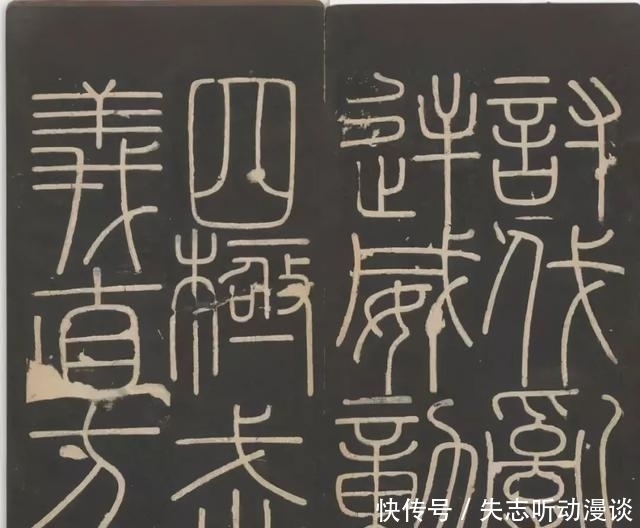 討伐亂
逆威動
四極武
義直方
快传号 / 失志听动漫谈